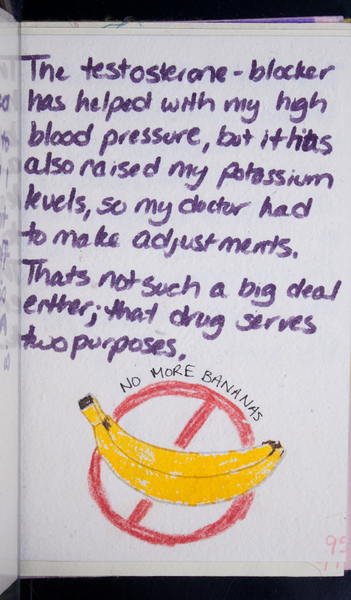 The testosterone-blocker
has helped with my high
blood pressure, but it has
also raised my potassium
levels, so my doctor had
to make adjustments.
Thats not such a big deal
either; that drug serves
two purposes.
NO MORE BANANAS
95